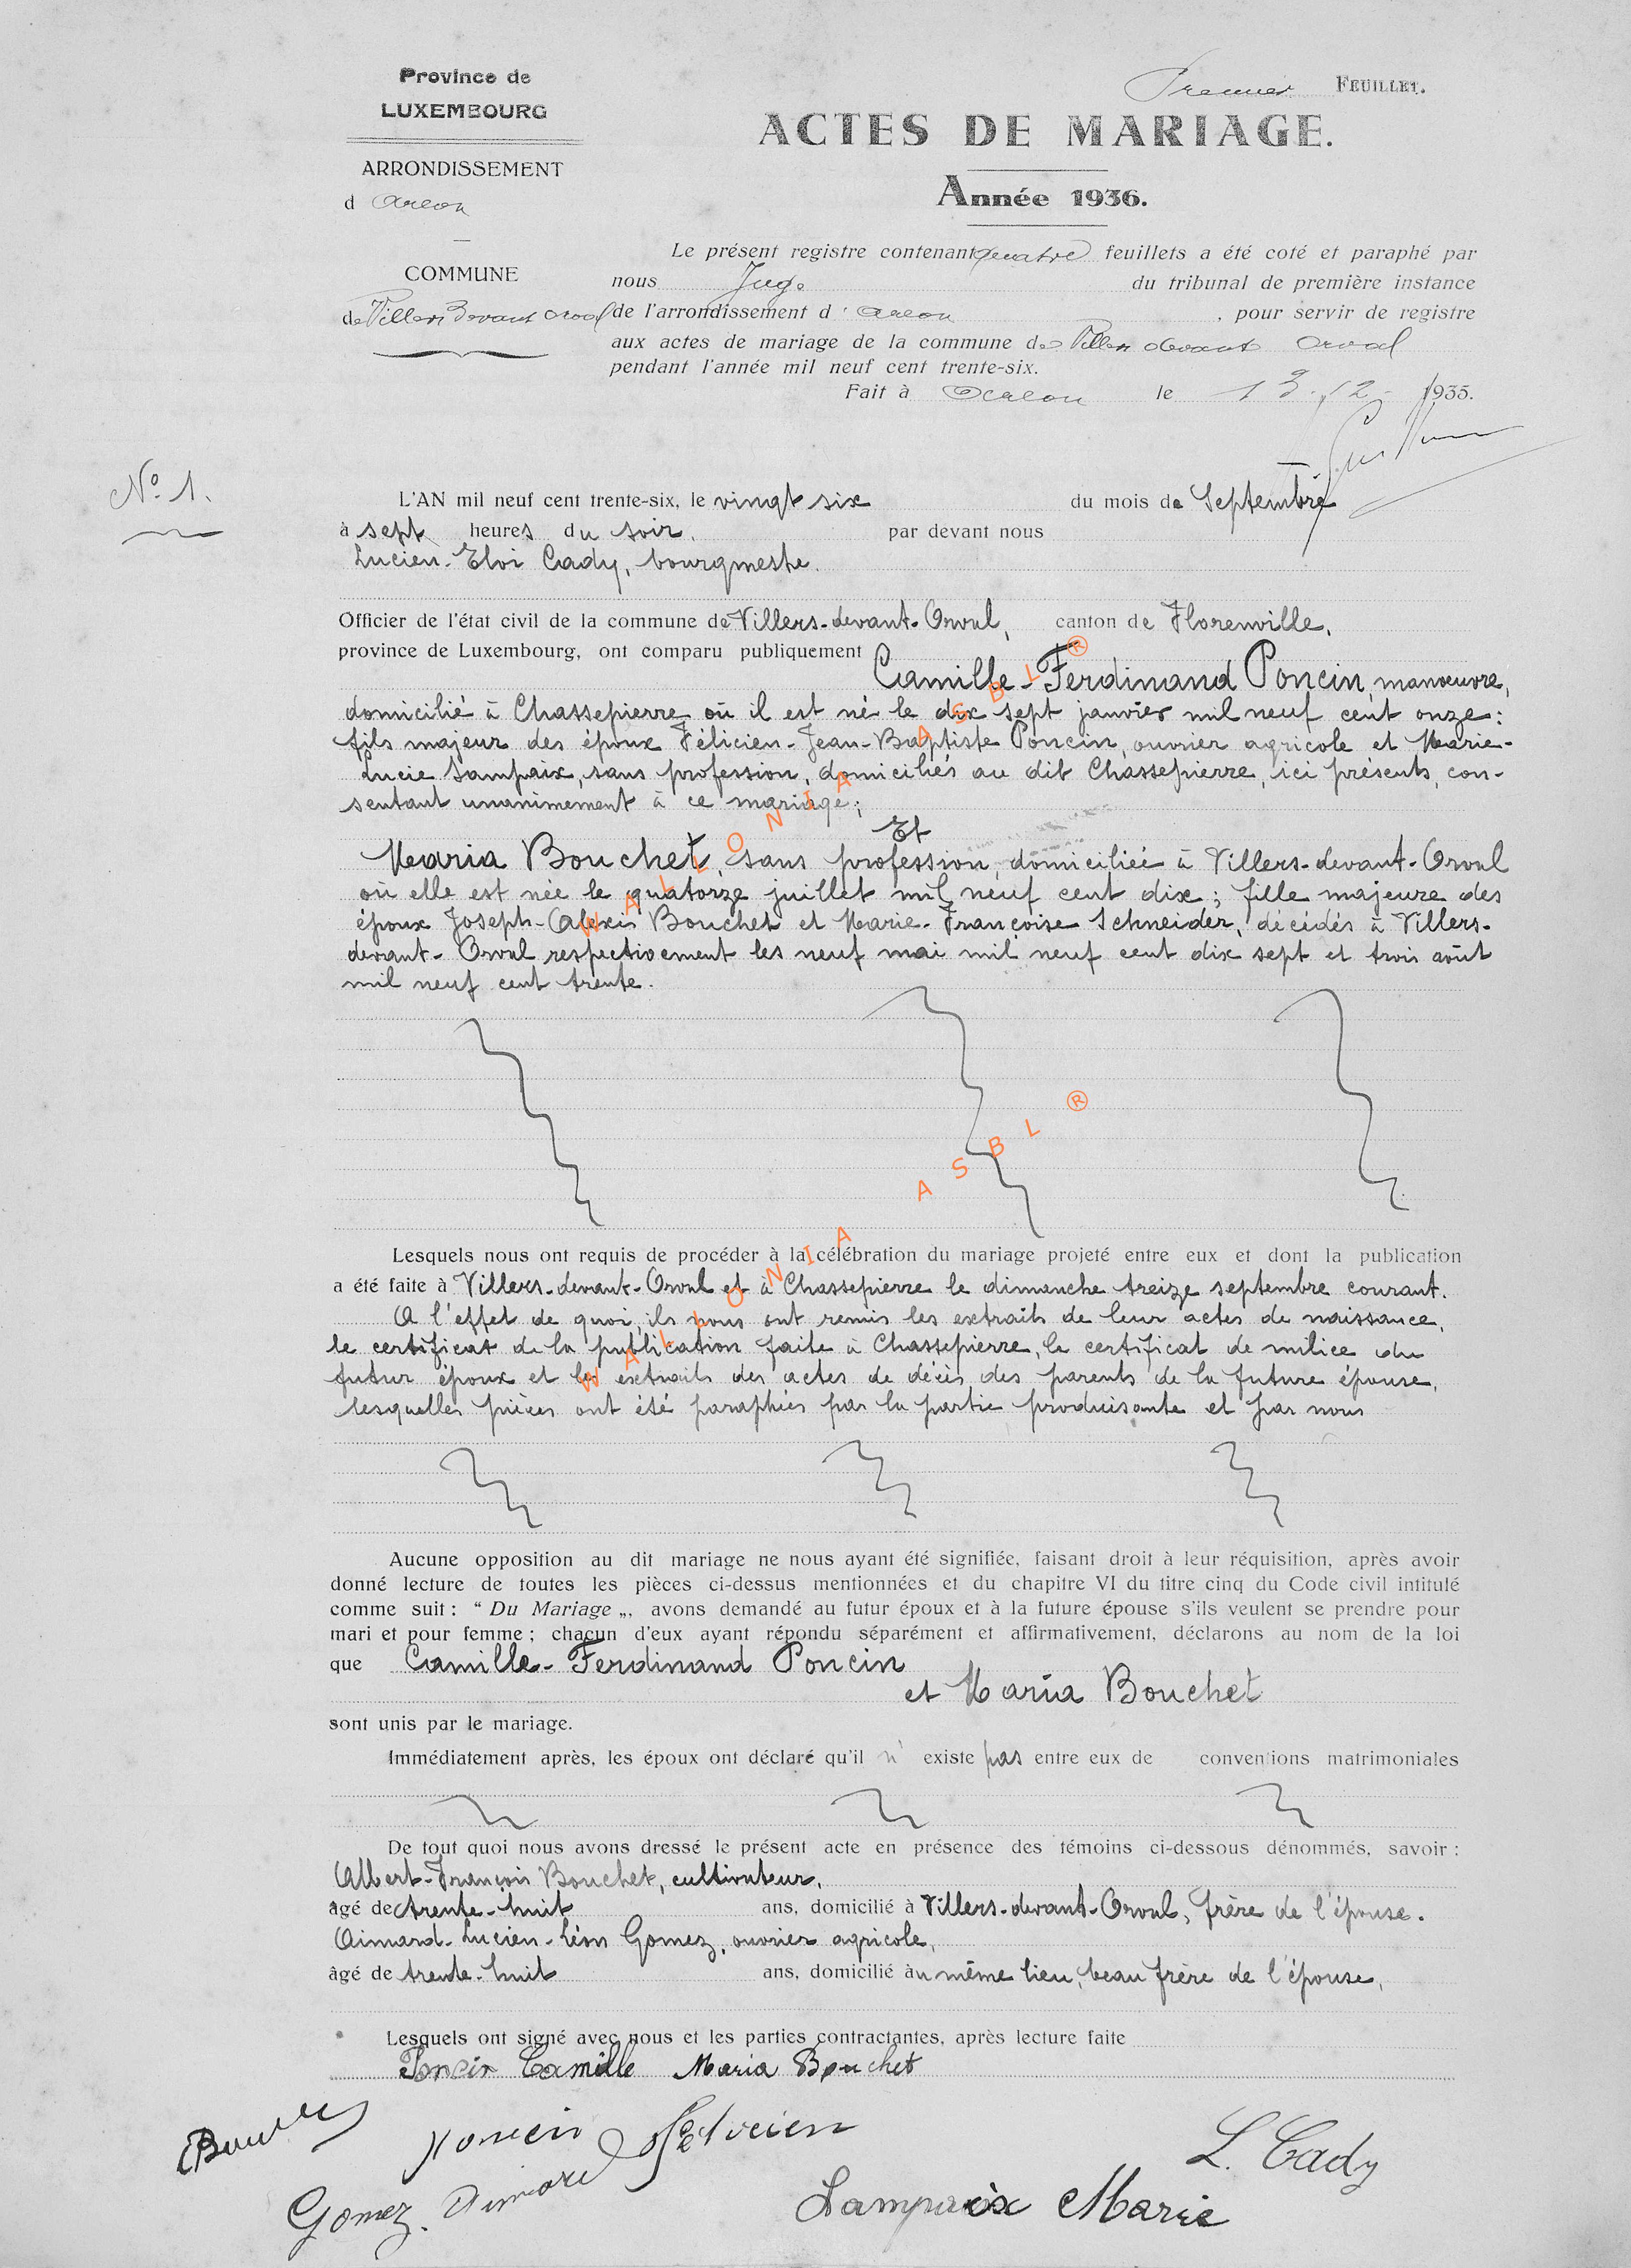 Province de
LUXEMBOURG
ARRONDISSEMENT
d Arlon
COMMUNE
de Villers devant Orval
Premier FEUILLET.
ACTES DE MARIAGE.
Année 1936.
Le présent registre contenant quatre feuillets a été coté et paraphé par
nous Juge du tribunal de première instance
de l'arrondissement d'Arlon, pour servir de registre
aux actes de mariage de la commune de Villers devant Orval
pendant l'année mil neuf cent trente-six.
Fait à Arlon le 13-12-1935.
N° 1.
L'AN mil neuf cent trente-six, le vingt six du mois de Septembre
à sept heures du soir, par devant nous
Lucien-Eloi Cady, bourgmestre.
Officier de l'état civil de la commune de Villers-devant-Orval, canton de Florenville,
province de Luxembourg, ont comparu publiquement
Camille-Ferdinand Poncin, manœuvre,
domicilié à Chassepierre où il est né le dix sept janvier mil neuf cent onze:
fils majeur des époux Félicien-Jean-Baptiste Poncin, ouvrier agricole et Marie-
Lucie Lampaix, sans profession, domiciliés au dit Chassepierre, ici présents, con-
sentant unanimement à ce mariage;
Et
Maria Bouchet, sans profession, domiciliée à Villers-devant-Orval
où elle est née le quatorze juillet mil neuf cent dix; fille majeure des
époux Joseph-Alexis Bouchet et Marie-Françoise Schneider, décédés à Villers-
devant-Orval respectivement les neuf mai mil neuf cent dix sept et trois août
mil neuf cent trente.
Lesquels nous ont requis de procéder à la célébration du mariage projeté entre eux et dont la publication
a été faite à Villers-devant-Orval et à Chassepierre le dimanche treize septembre courant.
A l'effet de quoi, ils nous ont remis les extraits de leur actes de naissance,
le certificat de la publication faite à Chassepierre, le certificat de milice du
futur époux et les extraits des actes de décès des parents de la future épouse,
lesquelles pièces ont été paraphées par la partie produisante et par nous
Aucune opposition au dit mariage ne nous ayant été signifiée, faisant droit à leur réquisition, après avoir
donné lecture de toutes les pièces ci-dessus mentionnées et du chapitre VI du titre cinq du Code civil intitulé
comme suit : “ Du Mariage „, avons demandé au futur époux et à la future épouse s'ils veulent se prendre pour
mari et pour femme ; chacun d'eux ayant répondu séparément et affirmativement, déclarons au nom de la loi
que Camille-Ferdinand Poncin
et Maria Bouchet
sont unis par le mariage.
Immédiatement après, les époux ont déclaré qu'il n' existe pas entre eux de conventions matrimoniales
De tout quoi nous avons dressé le présent acte en présence des témoins ci-dessous dénommés, savoir :
Albert-François Bouchet, cultivateur,
âgé de trente-huit ans, domicilié à Villers-devant-Orval, frère de l'épouse.
Aimard-Lucien-Léon Gomez, ouvrier agricole,
âgé de trente-huit ans, domicilié au même lieu, beau frère de l'épouse,
Lesquels ont signé avec nous et les parties contractantes, après lecture faite
Poncin Camille Maria Bouchet
Poncin Félicien
L. Cady
Gomez Aimard
Lampaix Marie
WALLONIA ASBL ®
WALLONIA ASBL ®